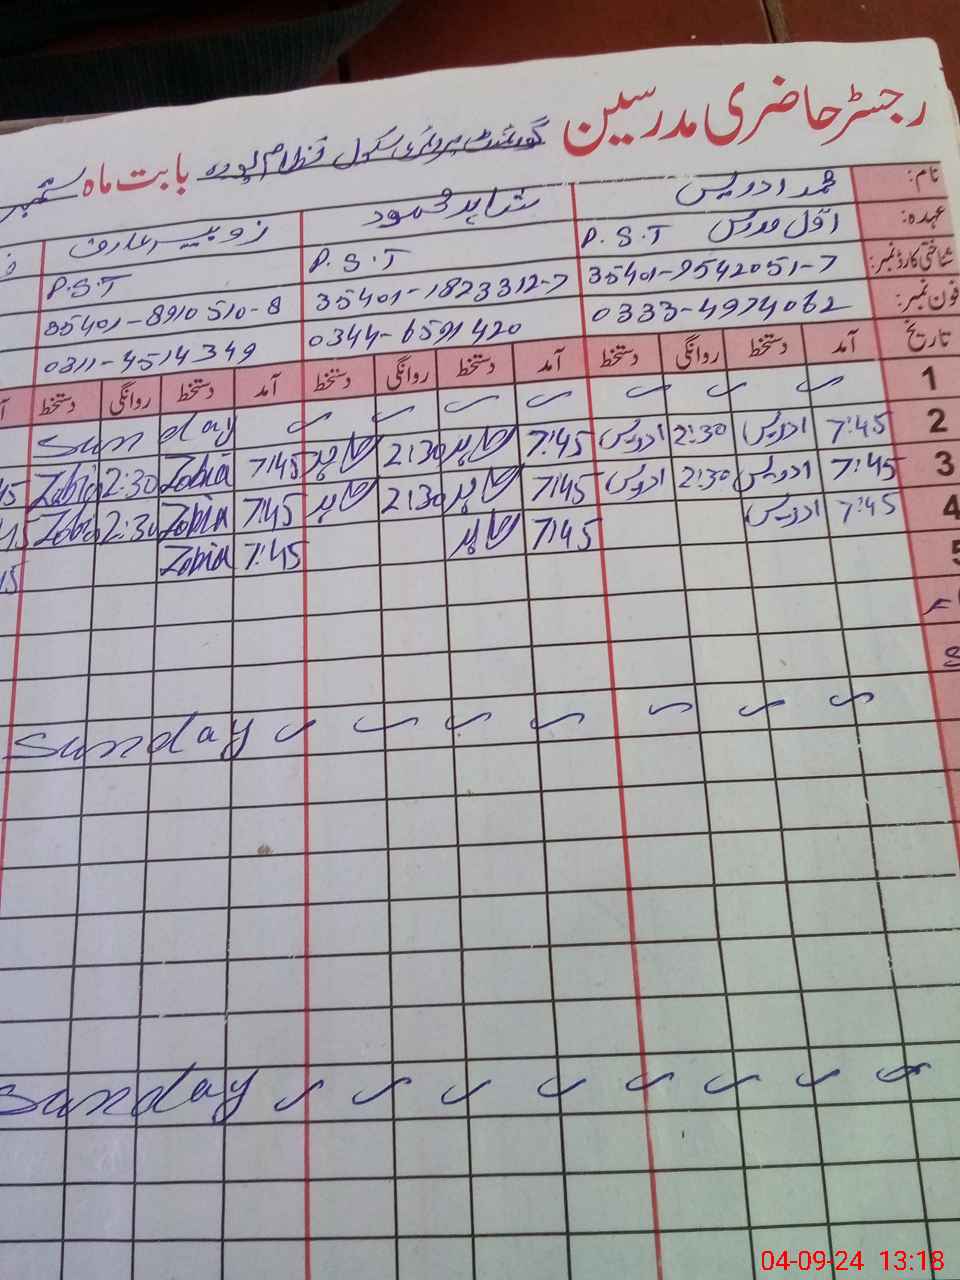 رجسٹر حاضری مدرسین گورنمنٹ پرائمری سکول نظام پورہ بابت ماہ ستمبر
نام: محمد ادریس شاہد محمود زوبیہ عارف
عہدہ: اوّل مدرس P.S.T P.S.T P.S.T
شناختی کارڈ نمبر: 35401-9542051-7 35401-1823312-7 35401-8910510-8
فون نمبر: 0333-4974062 0344-6591420 0311-4514349
تاریخ آمد دستخط روانگی دستخط آمد دستخط روانگی دستخط آمد دستخط روانگی دستخط
1 Sunday
2 7:45 ادریس 2:30 ادریس 7:45 شاہد 2:30 شاہد 7:45 Zobia 2:30 Zobia
3 7:45 ادریس 2:30 ادریس 7:45 شاہد 2:30 شاہد 7:45 Zobia 2:30 Zobia
4 7:45 ادریس 7:45 شاہد 7:45 Zobia
5
Sunday
Sunday
04-09-24 13:18